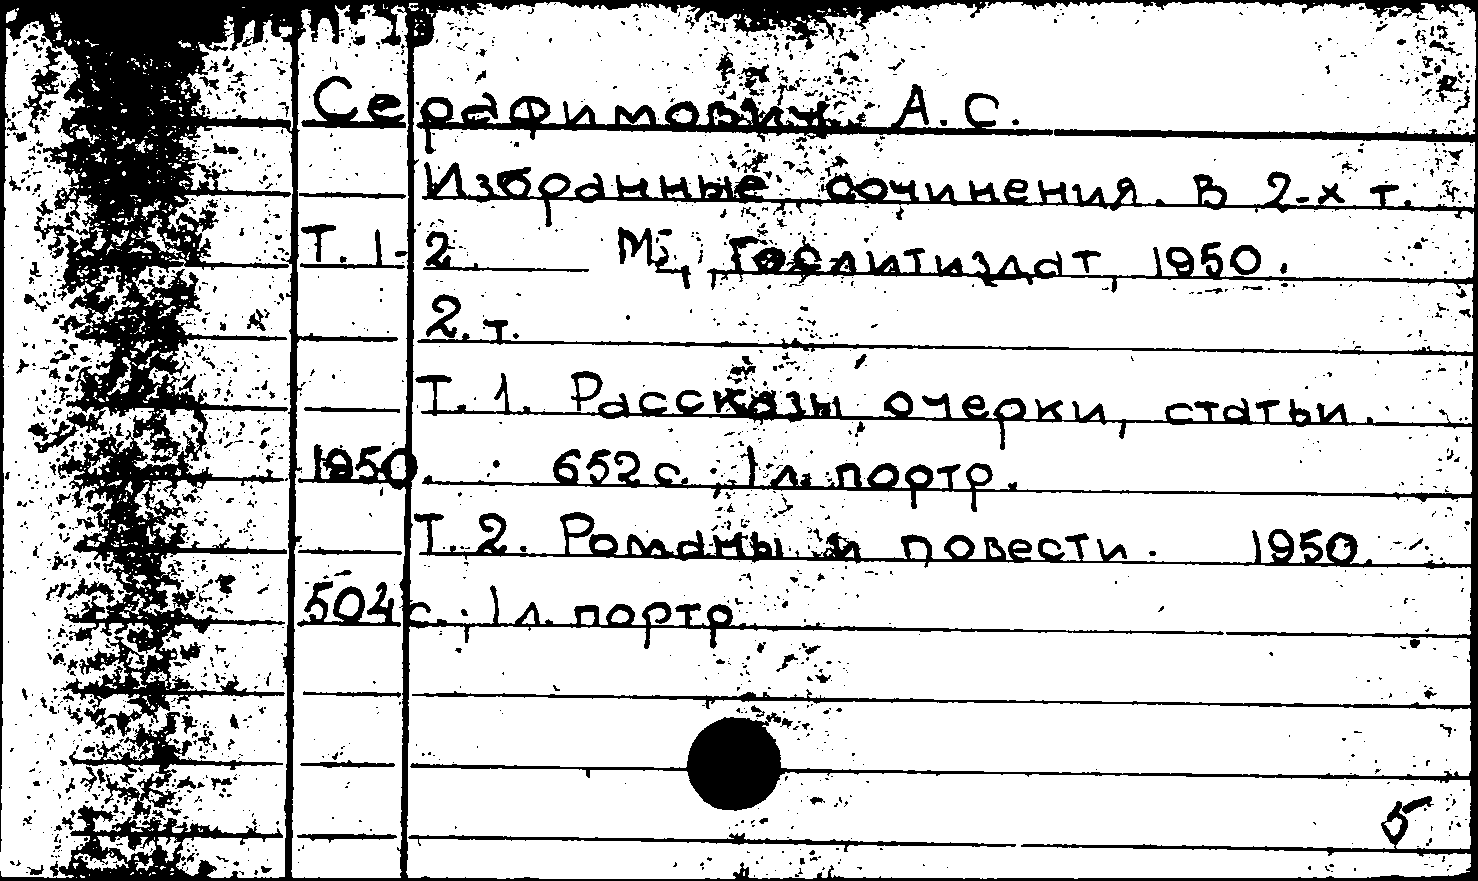 Серафимович А.С.
Избранные сочинения. В 2-х т.
Т. 1-2. М., Гослитиздат, 1950.
2 т.
Т. 1. Рассказы очерки, статьи.
1950. 652 с. ; 1 л. портр.
Т. 2. Романы и повести. 1950.
504 с. ; 1 л. портр
5